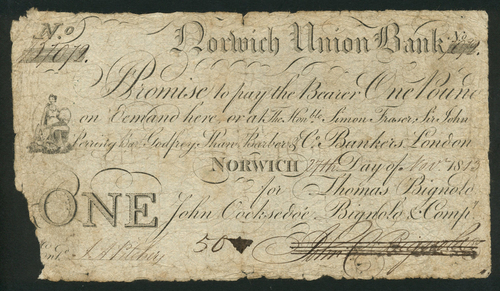 No Norwich Union Bank No
I Promise to pay the Bearer One Pound
on Demand here or at The Honble. Simon Fraser, Sir John
Perring Bar. Godfrey, Shaw, Barber & Co. Bankers London
NORWICH 27th Day of Novr. 1813
for Thomas Bignold
ONE John Cocksedge Bignold & Compy.
50